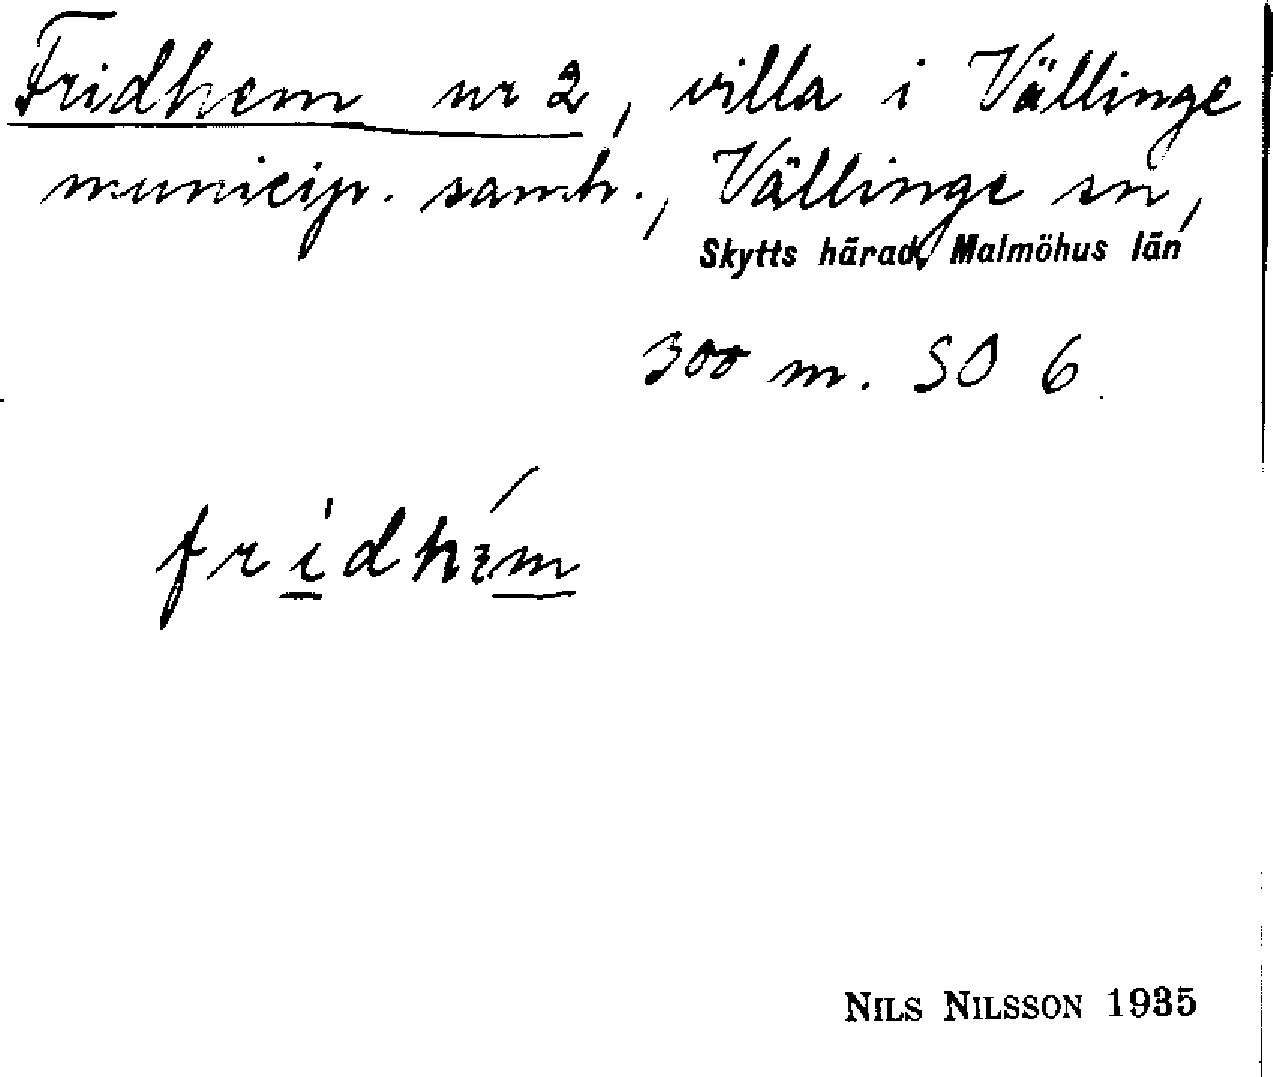 Fridhem nr 2, villa i Vällinge
municip. samh., Vällinge sn,
Skytts härad, Malmöhus län
300 m. SO 6.
fridhem
NILS NILSSON 1935